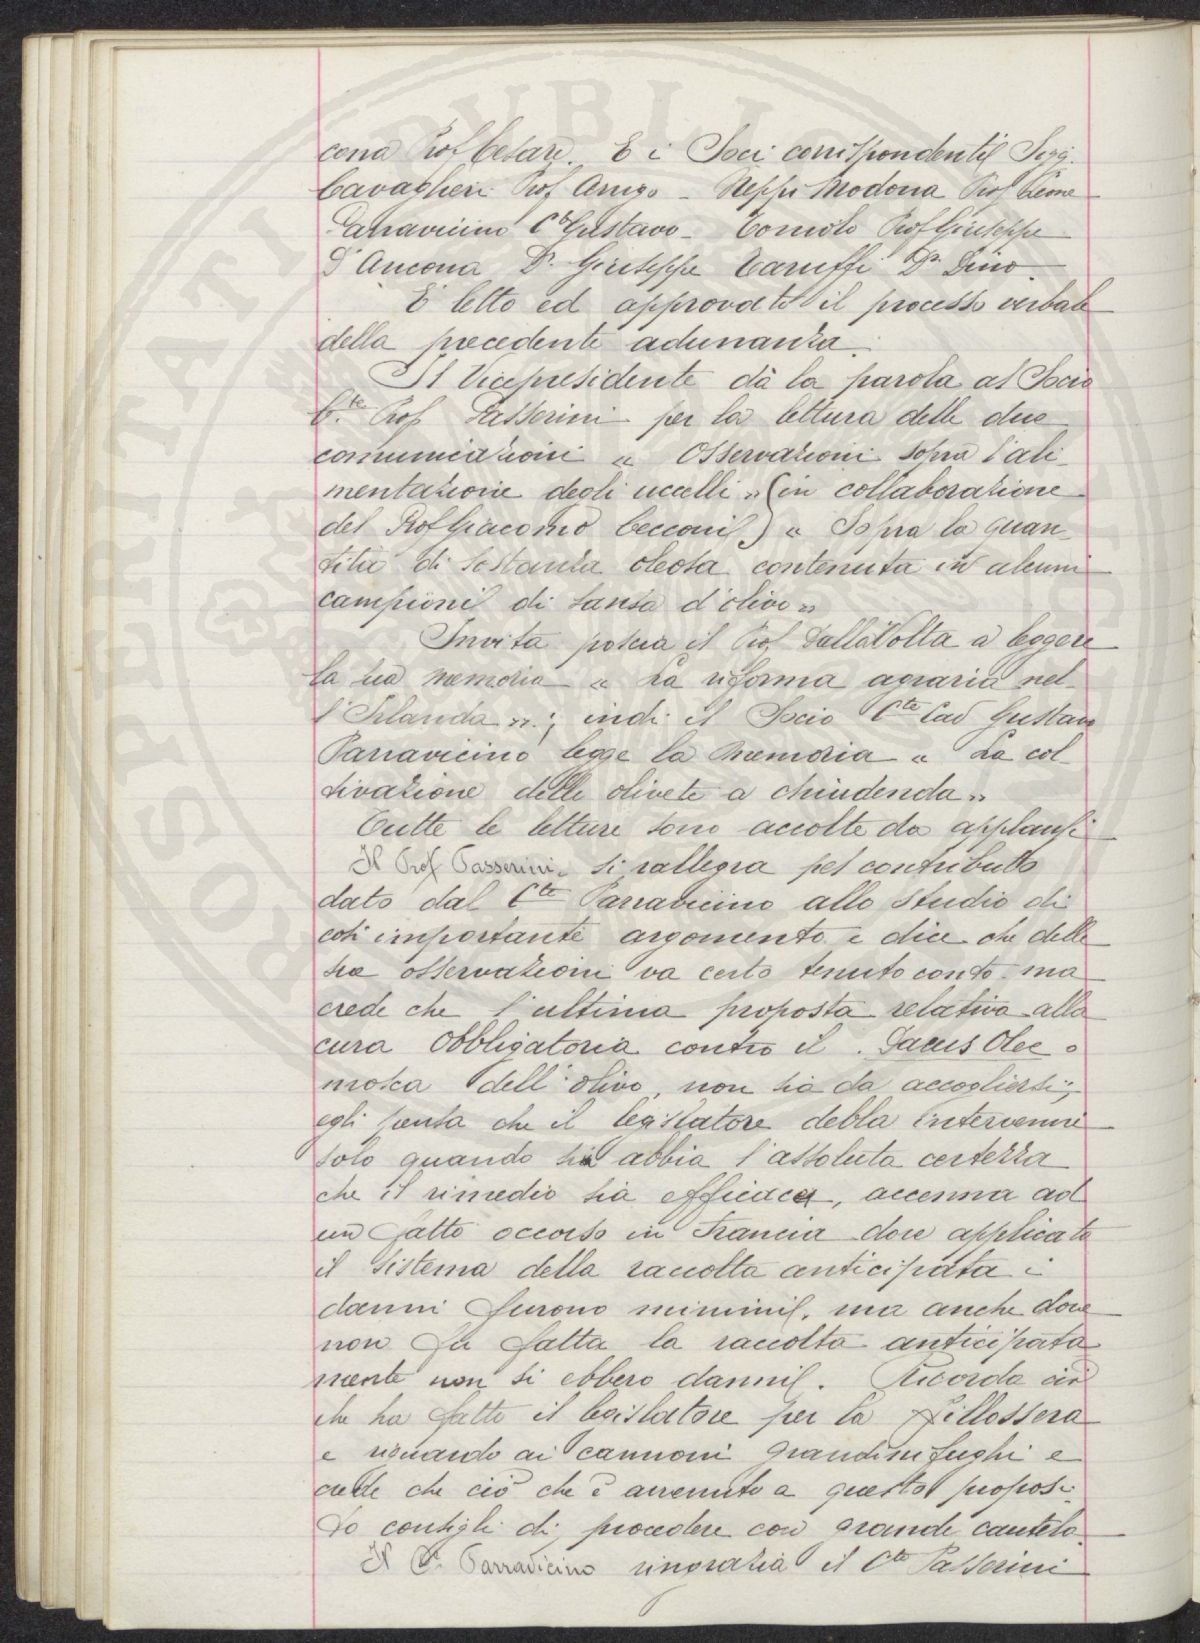 cona Prof Cesare. E i Soci corrispondenti Sigg.
Cavaglieri Prof Arrigo - Neppi Modona Prof Leone
Parravicino Cte Gustavo - Toniolo Prof Giuseppe
D'Ancona Dr. Giuseppe Taruffi Dr Dino.
E' letto ed approvato il processo verbale
della precedente adunanza.
Il Vicepresidente dà la parola al Socio
C.te Prof Passerini per la lettura delle due
comunicazioni « Osservazioni sopra l'ali-
mentazione degli uccelli » (in collaborazione
del Prof Giacomo Cecconi) « Sopra la quan-
tità di sostanza oleosa contenuta in alcuni
campioni di sansa d'olive »
Invita poscia il Prof. Dalla Volta a leggere
la sua memoria « La riforma agraria nel-
l'Irlanda »; indi il Socio Cte Cav Gustavo
Parravicino legge la memoria « La col-
tivazione delle olivete a chiudenda »
Tutte le letture sono accolte da applausi
Il Prof Passerini si rallegra pel contributo
dato dal Cte Parravicino allo studio di
così importante argomento e dice che delle
sue osservazioni va certo tenuto conto. ma
crede che l'ultima proposta relativa alla
cura obbligatoria contro il Dacus Oleae o
mosca dell'olivo, non sia da accogliersi;
egli pensa che il legislatore debba intervenire
solo quando si abbia l'assoluta certezza
che il rimedio sia efficace, accenna ad
un fatto occorso in Francia dove applicato
il sistema della raccolta anticipata i
danni furono minimi, ma anche dove
non fu fatta la raccolta anticipata
mente non si ebbero danni. Ricorda ciò
che ha fatto il legislatore per la fillossera
e riguardo ai cannoni grandinifughi e
crede che ciò che è avvenuto a questo proposi-
to consigli di procedere con grande cautela.
Il Cte Parravicino ringrazia il Cte Passerini
PROSPERITATI PUBLICAE